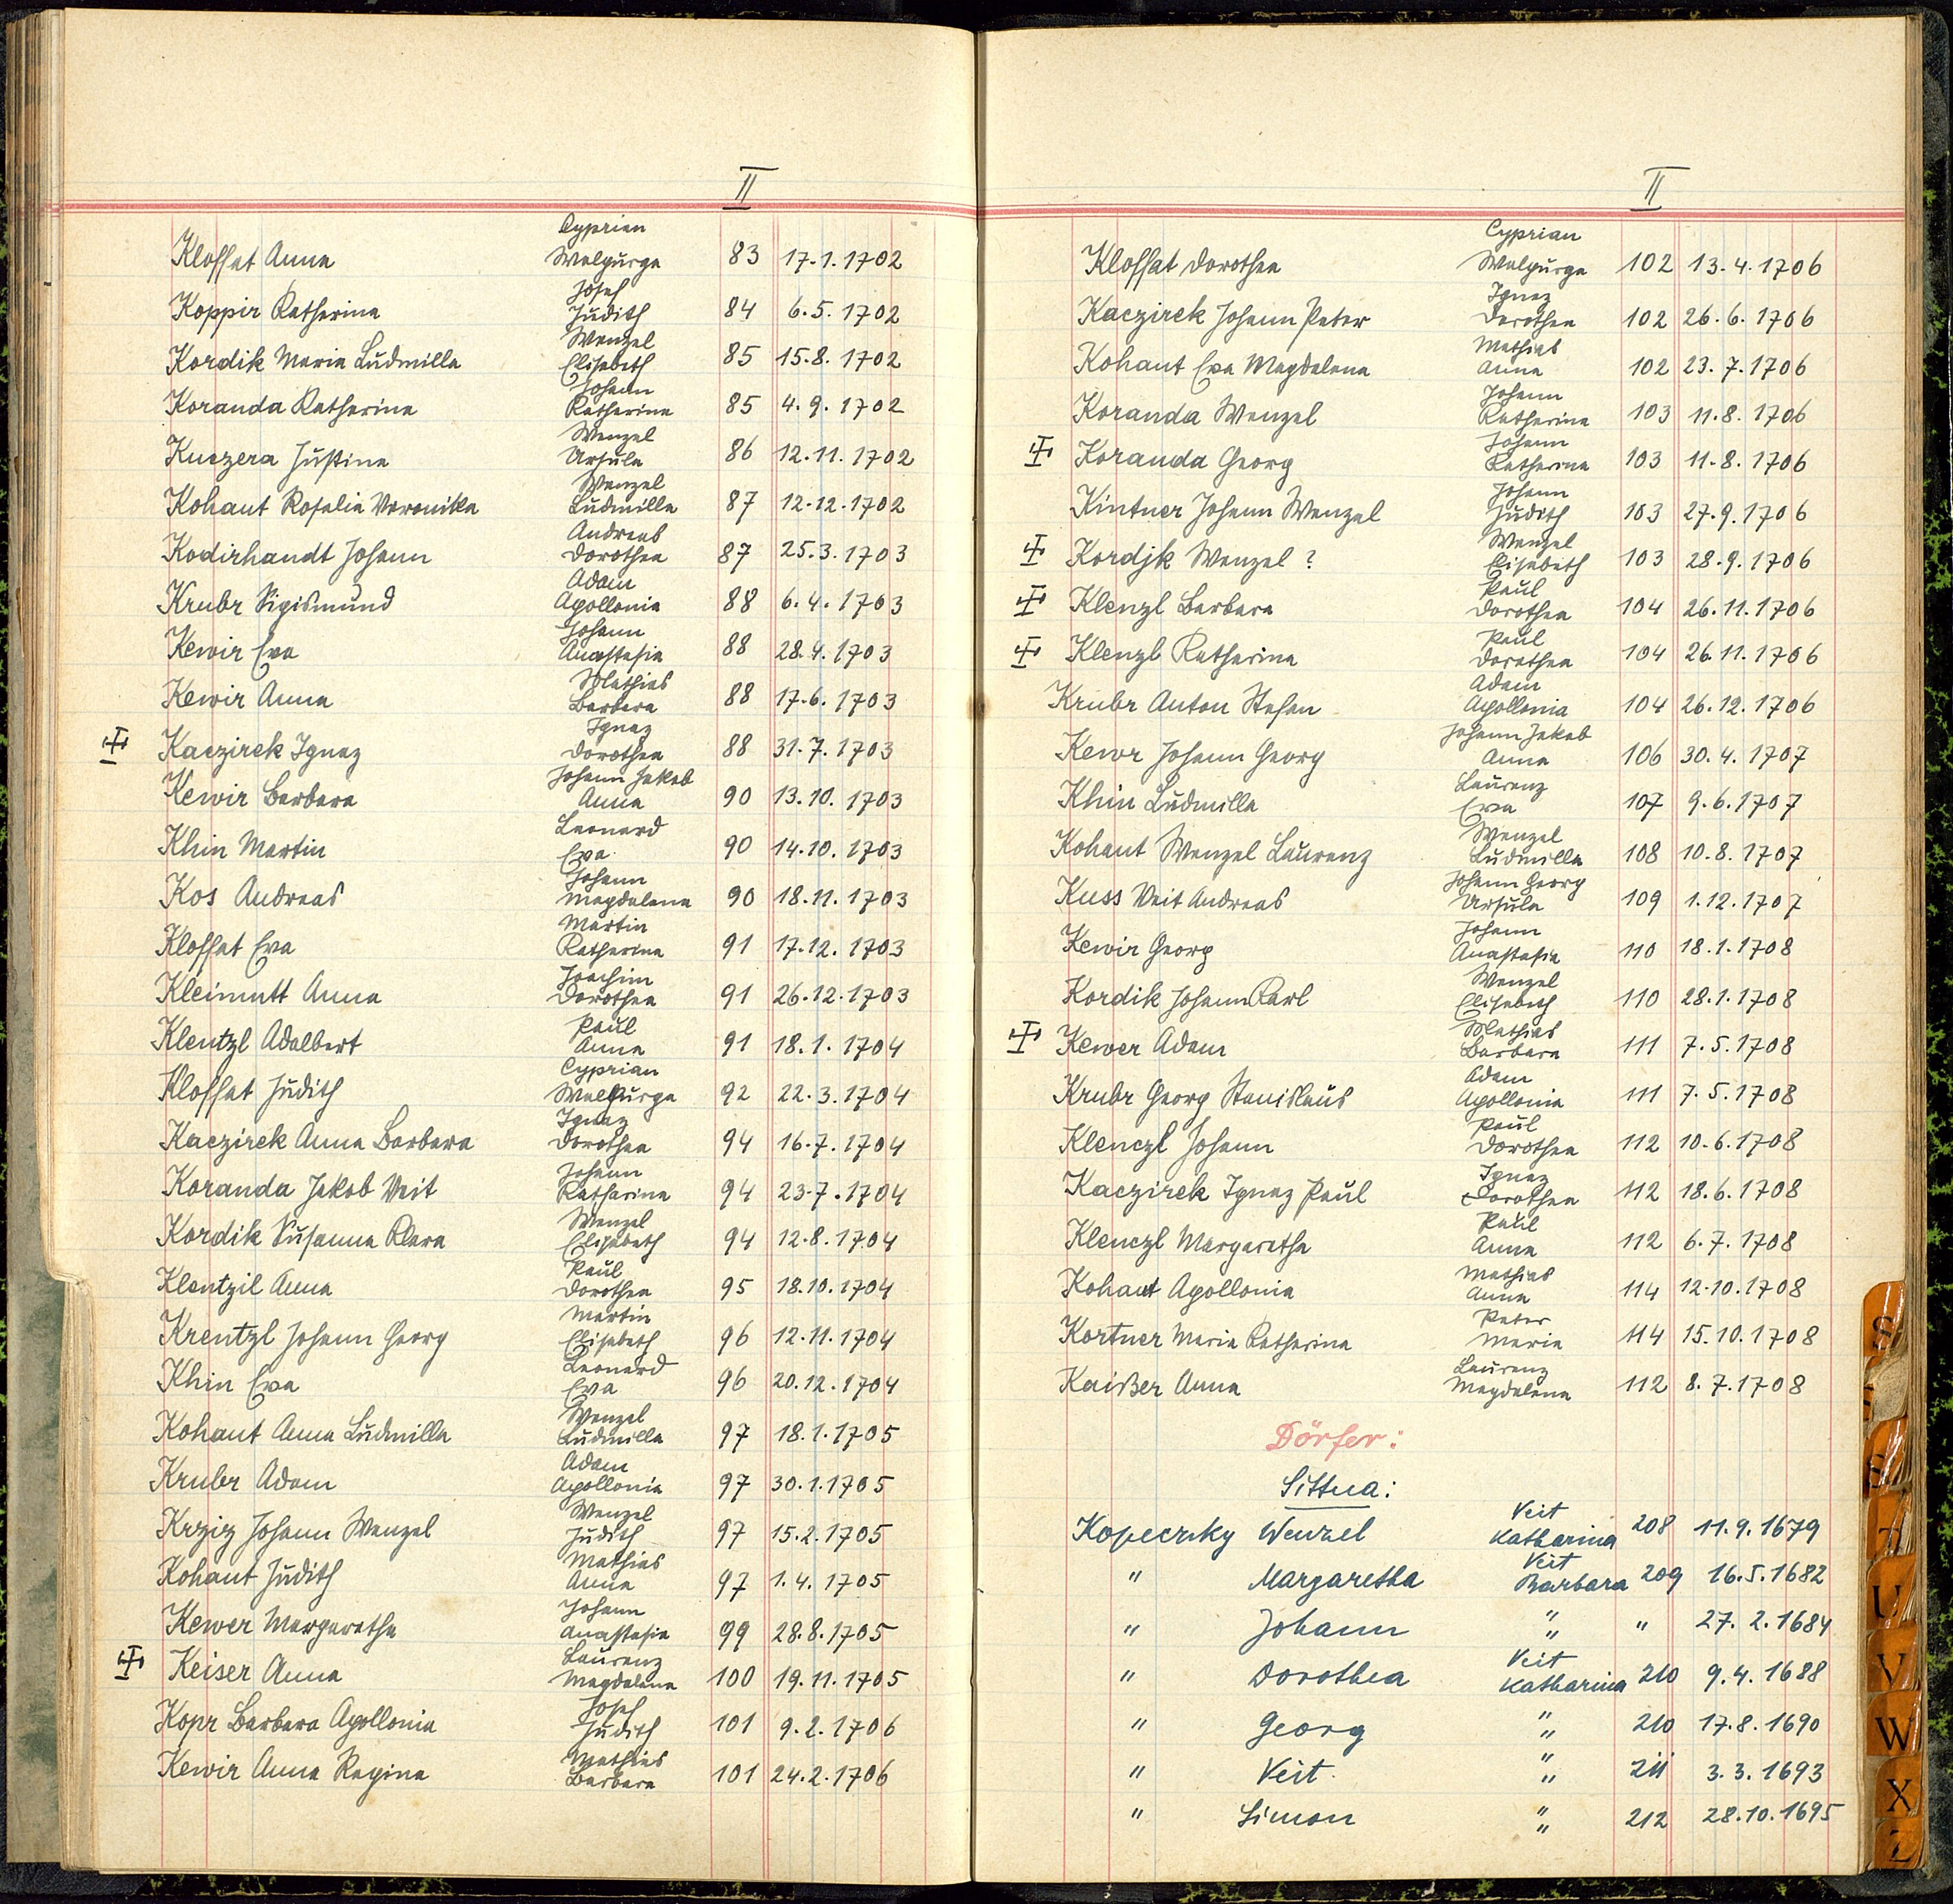 II
Cyprian
Kloffat Anna Walpurga 83 17.1.1702
Josef
Koppir Katharina Judith 84 6.5.1702
Wenzel
Kordik Maria Ludmilla Elisabeth 85 15.8.1702
Johann
Koranda Katharina Katharina 85 4.9.1702
Wenzel
Kuczera Justina Ursula 86 12.11.1702
Wenzel
Kohaut Rosalia Veronika Ludmilla 87 12.12.1702
Andreas
Kodirhandt Johann Dorothea 87 25.3.1703
Adam
Krubr Sigismund Apollonia 88 6.4.1703
Johann
Kewir Eva Anastasia 88 28.4.1703
Mathias
Kewir Anna Barbara 88 17.6.1703
Ignaz
Kaczirek Ignaz Dorothea 88 31.7.1703
Johann Jakob
Kewir Barbara Anna 90 13.10.1703
Leonard
Khin Martin Eva 90 14.10.1703
Johann
Kos Andreas Magdalena 90 18.11.1703
Martin
Kloffat Eva Katharina 91 17.12.1703
Joachim
Kleimutt Anna Dorothea 91 26.12.1703
Paul
Klentzl Adalbert Anna 91 18.1.1704
Cyprian
Kloffat Judith Walpurga 92 22.3.1704
Ignaz
Kaczirek Anna Barbara Dorothea 94 16.7.1704
Johann
Koranda Jakob Veit Katharina 94 23.7.1704
Wenzel
Kordik Susanna Klara Elisabeth 94 12.8.1704
Paul
Klentzil Anna Dorothea 95 18.10.1704
Martin
Krentzl Johann Georg Elisabeth 96 12.11.1704
Leonard
Khin Eva Eva 96 20.12.1704
Wenzel
Kohaut Anna Ludmilla Ludmilla 97 18.1.1705
Adam
Krubr Adam Apollonia 97 30.1.1705
Wenzel
Krziz Johann Wenzel Judith 97 15.2.1705
Mathias
Kohaut Judith Anna 97 1.4.1705
Johann
Kewer Margaretha Anastasia 99 28.8.1705
Laurenz
Keiser Anna Magdalena 100 19.11.1705
Josef
Kopr Barbara Apollonia Judith 101 9.2.1706
Mathias
Kewir Anna Regina Barbara 101 24.2.1706
II
Cyprian
Kloffat Dorothea Walpurga 102 13.4.1706
Ignaz
Kaczirek Johann Peter Dorothea 102 26.6.1706
Mathias
Kohaut Eva Magdalena Anna 102 23.7.1706
Johann
Koranda Wenzel Katharina 103 11.8.1706
Johann
Koranda Georg Katharina 103 11.8.1706
Johann
Kintner Johann Wenzel Judith 103 27.9.1706
Wenzel
Kordjk Wenzel ? Elisabeth 103 28.9.1706
Paul
Klenzl Barbara Dorothea 104 26.11.1706
Paul
Klenzl Katharina Dorothea 104 26.11.1706
Adam
Krubr Anton Stefan Apollonia 104 26.12.1706
Johann Jakob
Kewr Johann Georg Anna 106 30.4.1707
Laurenz
Khin Ludmilla Eva 107 9.6.1707
Wenzel
Kohaut Wenzel Laurenz Ludmilla 108 10.8.1707
Johann Georg
Kuss Veit Andreas Ursula 109 1.12.1707
Johann
Kewir Georg Anastasia 110 18.1.1708
Wenzel
Kordik Johann Karl Elisabeth 110 28.1.1708
Mathias
Kewer Adam Barbara 111 7.5.1708
Adam
Krubr Georg Stanislaus Apollonia 111 7.5.1708
Paul
Klenczl Johann Dorothea 112 10.6.1708
Ignaz
Kaczirek Ignaz Paul Dorothea 112 18.6.1708
Paul
Klenczl Margaretha Anna 112 6.7.1708
Mathias
Kohaut Apollonia Anna 114 12.10.1708
Peter
Kortner Maria Katharina Maria 114 15.10.1708
Laurenz
Kaißer Anna Magdalena 112 8.7.1708
Dörfer:
Sittna:
Veit
Kopeczky Wenzel Katharina 208 11.9.1679
Veit
" Margaretha Barbara 209 16.5.1682
"
" Johann " " 27.2.1684
Veit
" Dorothea Katharina 210 9.4.1688
"
" Georg " 210 17.8.1690
"
" Veit " 211 3.3.1693
"
" Simon " 212 28.10.1695
S
U
V
W
X
Z